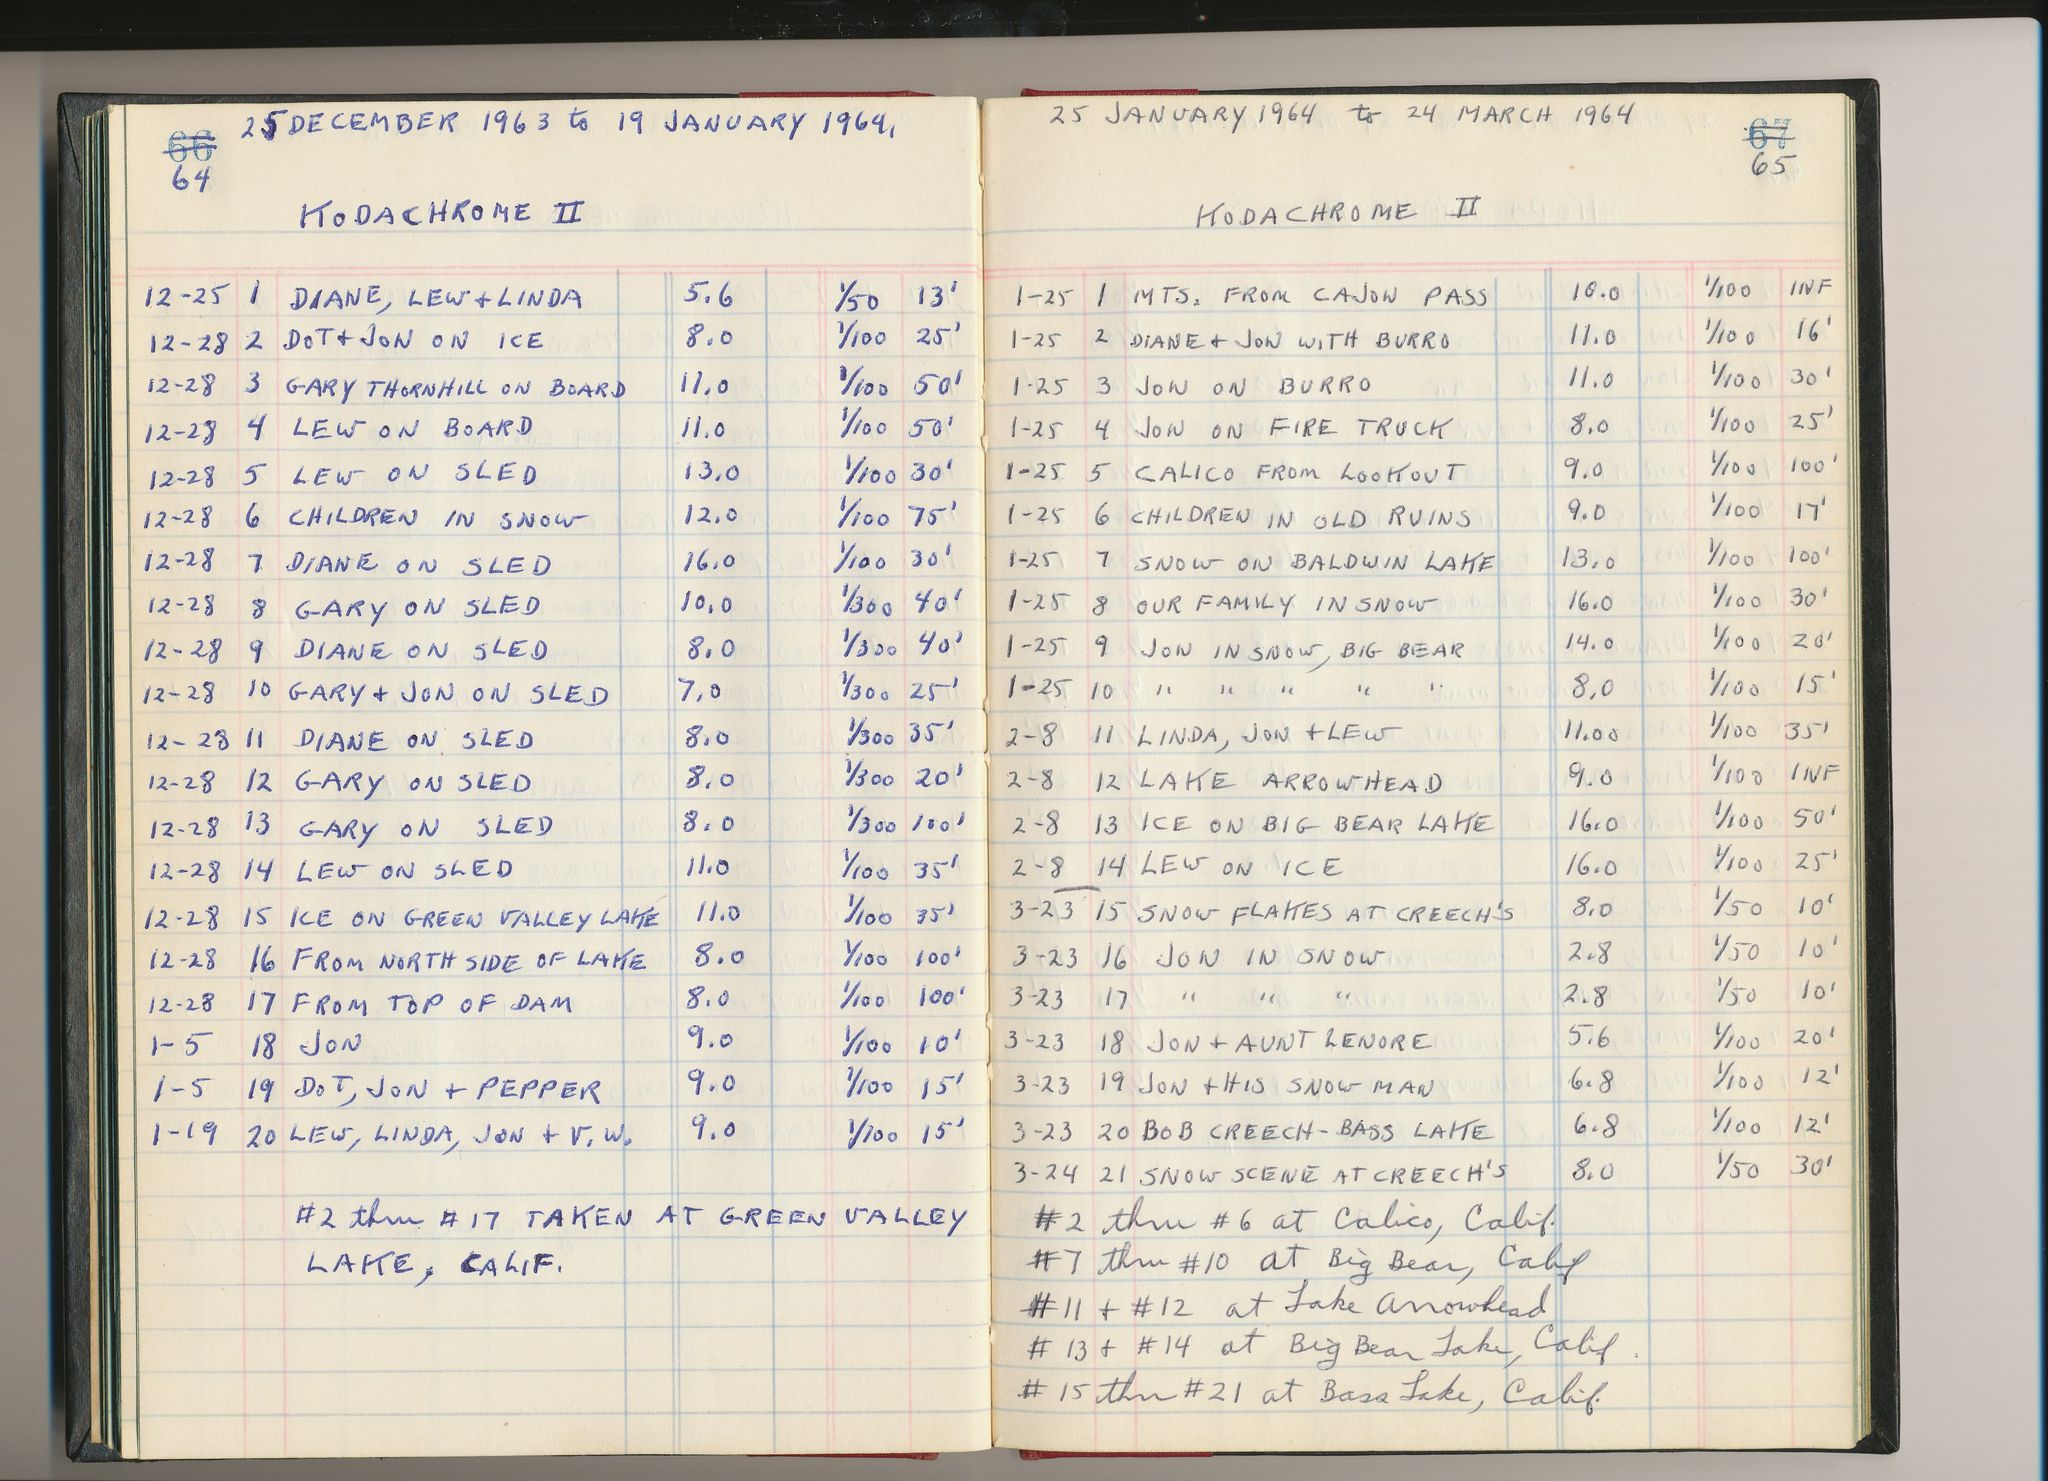 25 DECEMBER 1963 to 19 JANUARY 1964.
66
64
KODACHROME II
12-25 1 DIANE, LEW + LINDA 5.6 1/50 13'
12-28 2 DOT + JON ON ICE 8.0 1/100 25'
12-28 3 GARY THORNHILL ON BOARD 11.0 1/100 50'
12-28 4 LEW ON BOARD 11.0 1/100 50'
12-28 5 LEW ON SLED 13.0 1/100 30'
12-28 6 CHILDREN IN SNOW 12.0 1/100 75'
12-28 7 DIANE ON SLED 16.0 1/100 30'
12-28 8 GARY ON SLED 10.0 1/300 40'
12-28 9 DIANE ON SLED 8.0 1/300 40'
12-28 10 GARY + JON ON SLED 7.0 1/300 25'
12-28 11 DIANE ON SLED 8.0 1/300 35'
12-28 12 GARY ON SLED 8.0 1/300 20'
12-28 13 GARY ON SLED 8.0 1/300 100'
12-28 14 LEW ON SLED 11.0 1/100 35'
12-28 15 ICE ON GREEN VALLEY LAKE 11.0 1/100 35'
12-28 16 FROM NORTH SIDE OF LAKE 8.0 1/100 100'
12-28 17 FROM TOP OF DAM 8.0 1/100 100'
1-5 18 JON 9.0 1/100 10'
1-5 19 DOT, JON + PEPPER 9.0 1/100 15'
1-19 20 LEW, LINDA, JON + V.W. 9.0 1/100 15'
#2 thru #17 TAKEN AT GREEN VALLEY
LAKE, CALIF.
25 JANUARY 1964 to 24 MARCH 1964
67
65
KODACHROME II
1-25 1 MTS. FROM CAJON PASS 10.0 1/100 INF
1-25 2 DIANE + JON WITH BURRO 11.0 1/100 16'
1-25 3 JON ON BURRO 11.0 1/100 30'
1-25 4 JON ON FIRE TRUCK 8.0 1/100 25'
1-25 5 CALICO FROM LOOKOUT 9.0 1/100 100'
1-25 6 CHILDREN IN OLD RUINS 9.0 1/100 17'
1-25 7 SNOW ON BALDWIN LAKE 13.0 1/100 100'
1-25 8 OUR FAMILY IN SNOW 16.0 1/100 30'
1-25 9 JON IN SNOW, BIG BEAR 14.0 1/100 20'
1-25 10 " " " " " 8.0 1/100 15'
2-8 11 LINDA, JON + LEW 11.00 1/100 35'
2-8 12 LAKE ARROWHEAD 9.0 1/100 INF
2-8 13 ICE ON BIG BEAR LAKE 16.0 1/100 50'
2-8 14 LEW ON ICE 16.0 1/100 25'
3-23 15 SNOW FLAKES AT CREECH'S 8.0 1/50 10'
3-23 16 JON IN SNOW 2.8 1/50 10'
3-23 17 " " " 2.8 1/50 10'
3-23 18 JON + AUNT LENORE 5.6 1/100 20'
3-23 19 JON + HIS SNOW MAN 6.8 1/100 12'
3-23 20 BOB CREECH - BASS LAKE 6.8 1/100 12'
3-24 21 SNOW SCENE AT CREECH'S 8.0 1/50 30'
#2 thru #6 at Calico, Calif.
#7 thru #10 at Big Bear, Calif
#11 + #12 at Lake Arrowhead
#13 + #14 at Big Bear Lake, Calif.
#15 thru #21 at Bass Lake, Calif.